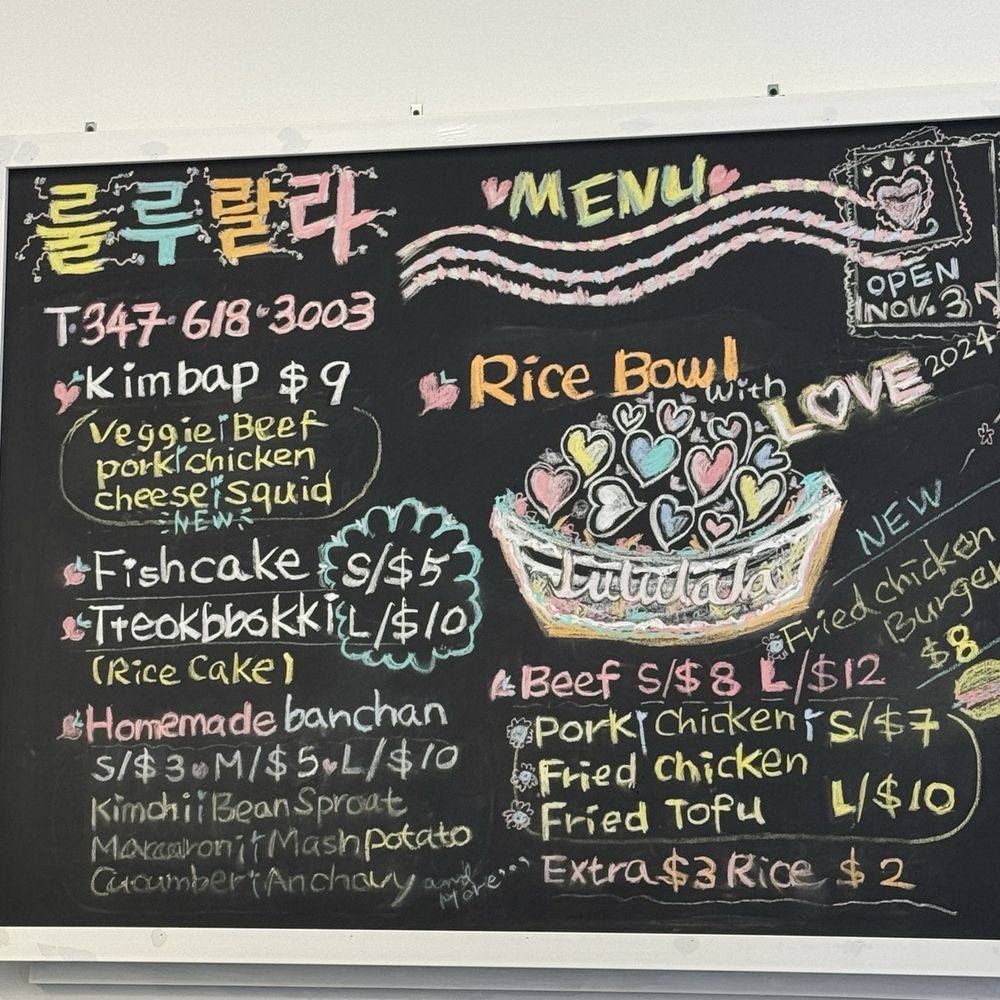 룰루랄라
MENU
OPEN
NOV. 3,
2024
T.347.618.3003
Kimbap $9
Veggie Beef
pork chicken
cheese squid
NEW
Fishcake
S/$5
Tteokbbokki
L/$10
(Rice Cake)
Homemade banchan
S/$3 M/$5 L/$10
Kimchi Bean Sprout
Macaroni Mash potato
Cucumber Anchovy and
More....
Rice Bowl with LOVE
Lululala
NEW
Fried chicken
Burger
$8
Beef S/$8 L/$12
Pork chicken S/$7
Fried chicken
Fried Tofu L/$10
Extra $3 Rice $2